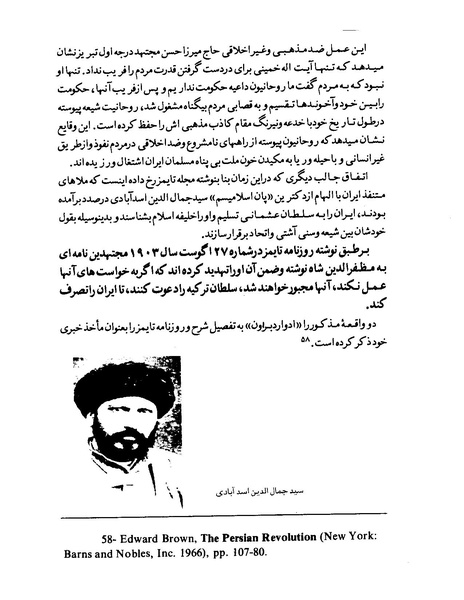 این عمل ضد مذهبی وغیر اخلاقی حاج میرزا حسن مجتهد درجه اول تبریز نشان
میدهد که تنها آیت اله خمینی برای دردست گرفتن قدرت مردم را فریب نداد. تنها او
نبود که به مردم گفت ما روحانیون داعیه حکومت نداریم و پس از فریب آنها، حکومت
را بین خود وآخوندها تقسیم و به قصابی مردم بیگناه مشغول شد، روحانیت شیعه پیوسته
درطول تاریخ خود با خدعه ونیرنگ مقام کاذب مذهبی اش را حفظ کرده است. این وقایع
نشان میدهد که روحانیون پیوسته از راههای نامشروع وضد اخلاقی درمردم نفوذ وازطریق
غیرانسانی و باحیله و ریا به مکیدن خون ملت بی پناه مسلمان ایران اشتغال ورزیده اند.
اتفاق جالب دیگری که دراین زمان بنا بنوشته مجله تایمز رخ داده اینست که ملاهای
متنفذ ایران با الهام ازدکترین «پان اسلامیسم» سیدجمال الدین اسدآبادی درصدد برآمده
بودند، ایران را به سلطان عشمانی تسلیم واورا خلیفه اسلام بشناسند و بدینوسیله بقول
خودشان بین شیعه وسنی آشتی واتحاد برقرارسازند.
برطبق نوشته روزنامه تایمز درشماره ۲۷ اگوست سال ۱۹۰۳ مجتهدین نامه ای
به مظفرالدین شاه نوشته وضمن آن اورا تهدید کرده اند که اگر به خواست های آنها
عمل نکند، آنها مجبورخواهند شد، سلطان ترکیه را دعوت کنند، تا ایران را تصرف
کند.
دو واقعهٔ مذکوررا «ادوارد براون» به تفصیل شرح و روزنامه تایمز را بعنوان مأخذ خبری
خود ذکر کرده است.۵۸
سید جمال الدین اسد آبادی
58- Edward Brown, The Persian Revolution (New York:
Barns and Nobles, Inc. 1966), pp. 107-80.